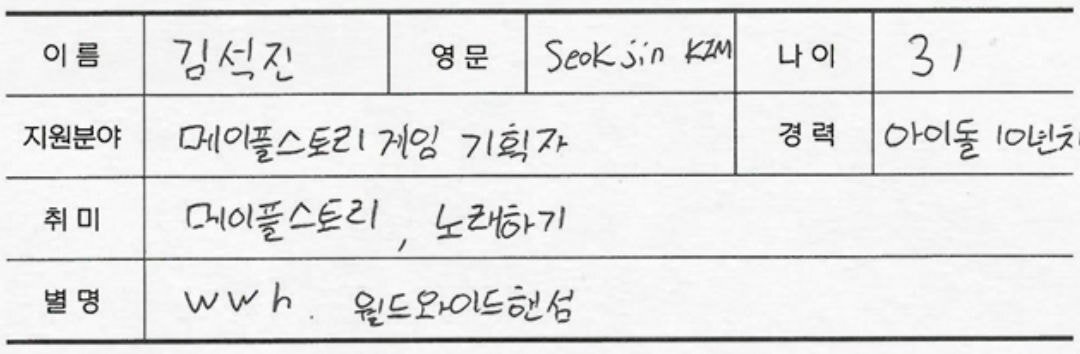 이름 김석진 영문 Seokjin KIM 나이 31
지원분야 메이플스토리 게임 기획자 경력 아이돌 10년차
취미 메이플스토리, 노래하기
별명 wwh. 월드와이드핸섬